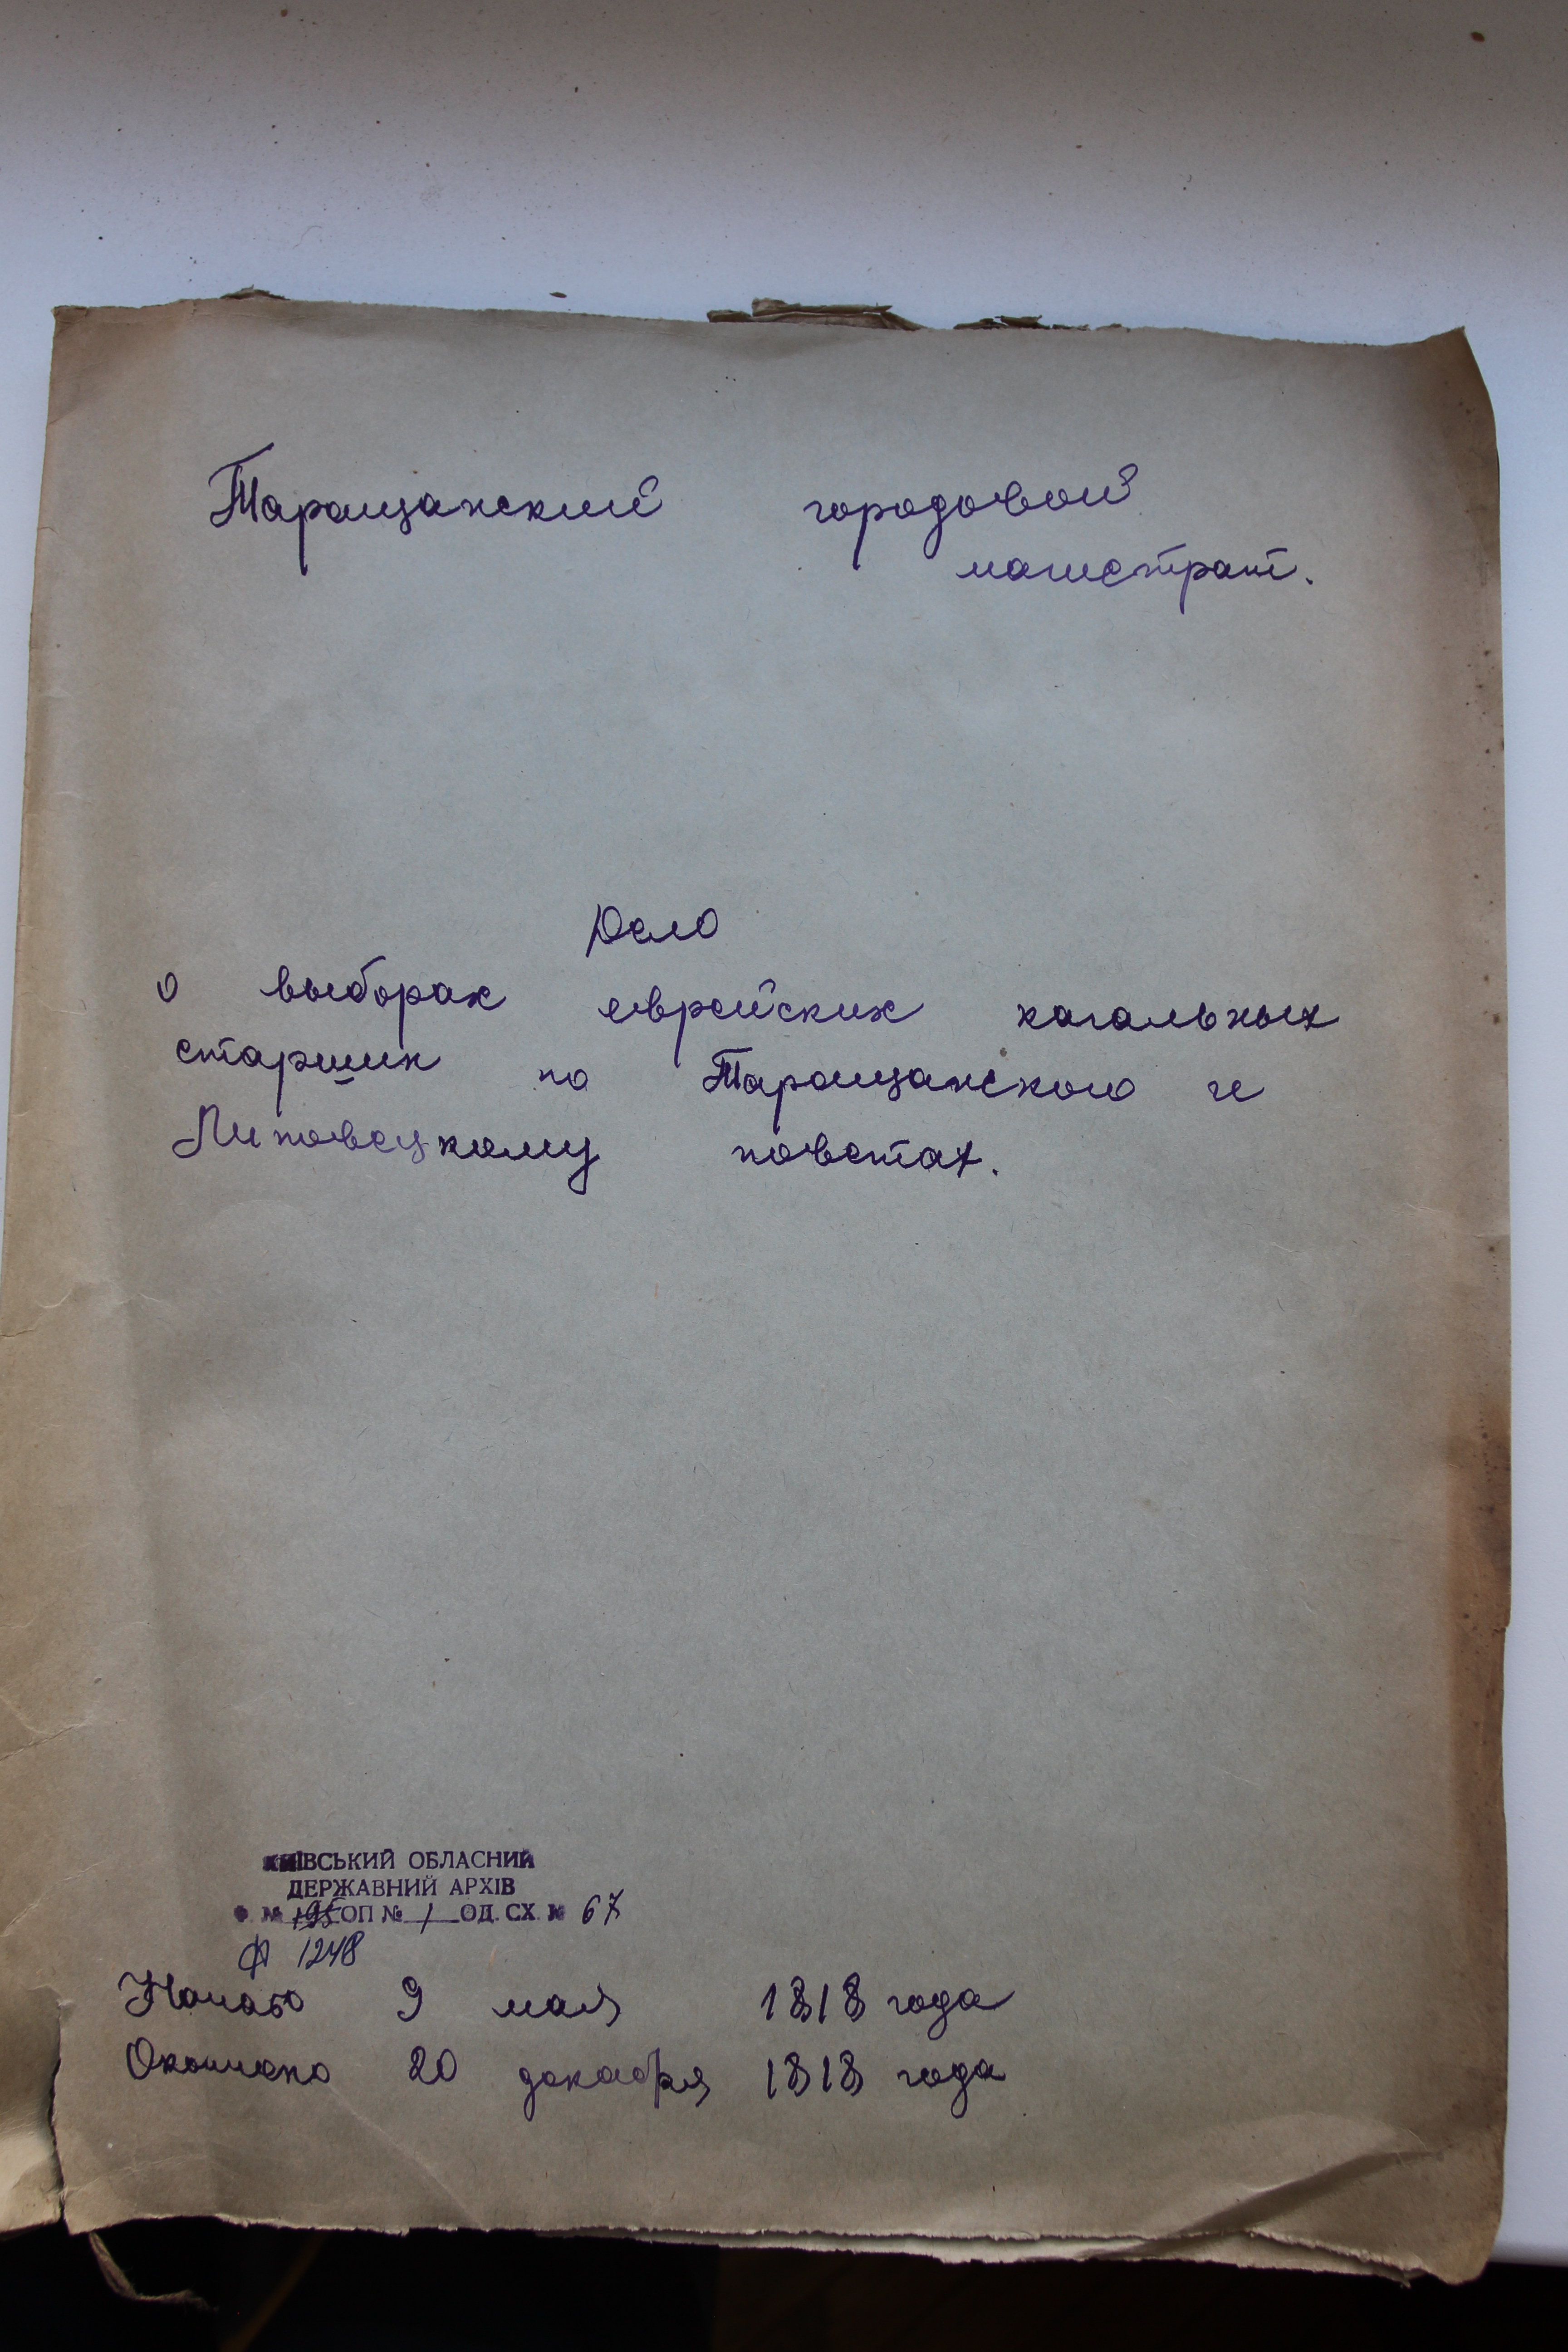 Таращанский городовой
магистрат.
Дело
о выборах еврейских кагальных
старшин по Таращанского и
Липовецкому поветах.
КИЇВСЬКИЙ ОБЛАСНИЙ
ДЕРЖАВНИЙ АРХІВ
Ф. № 195 ОП № 1 ОД. СХ. № 67
Ф 1248
Начало 9 мая 1818 года
Окончено 20 декабря 1818 года